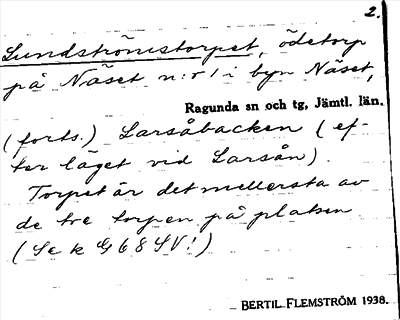 2.
Sundströmstorpet, ödetorp
på Näset n:o 1 i byn Näset,
Ragunda sn och tg, Jämtl. län.
(forts.) Larsåbacken (ef-
ter läget vid Larsån).
Torpet är det mellersta av
de tre torpen på platsen
(Se k G 68 SV!)
BERTIL FLEMSTRÖM 1938.